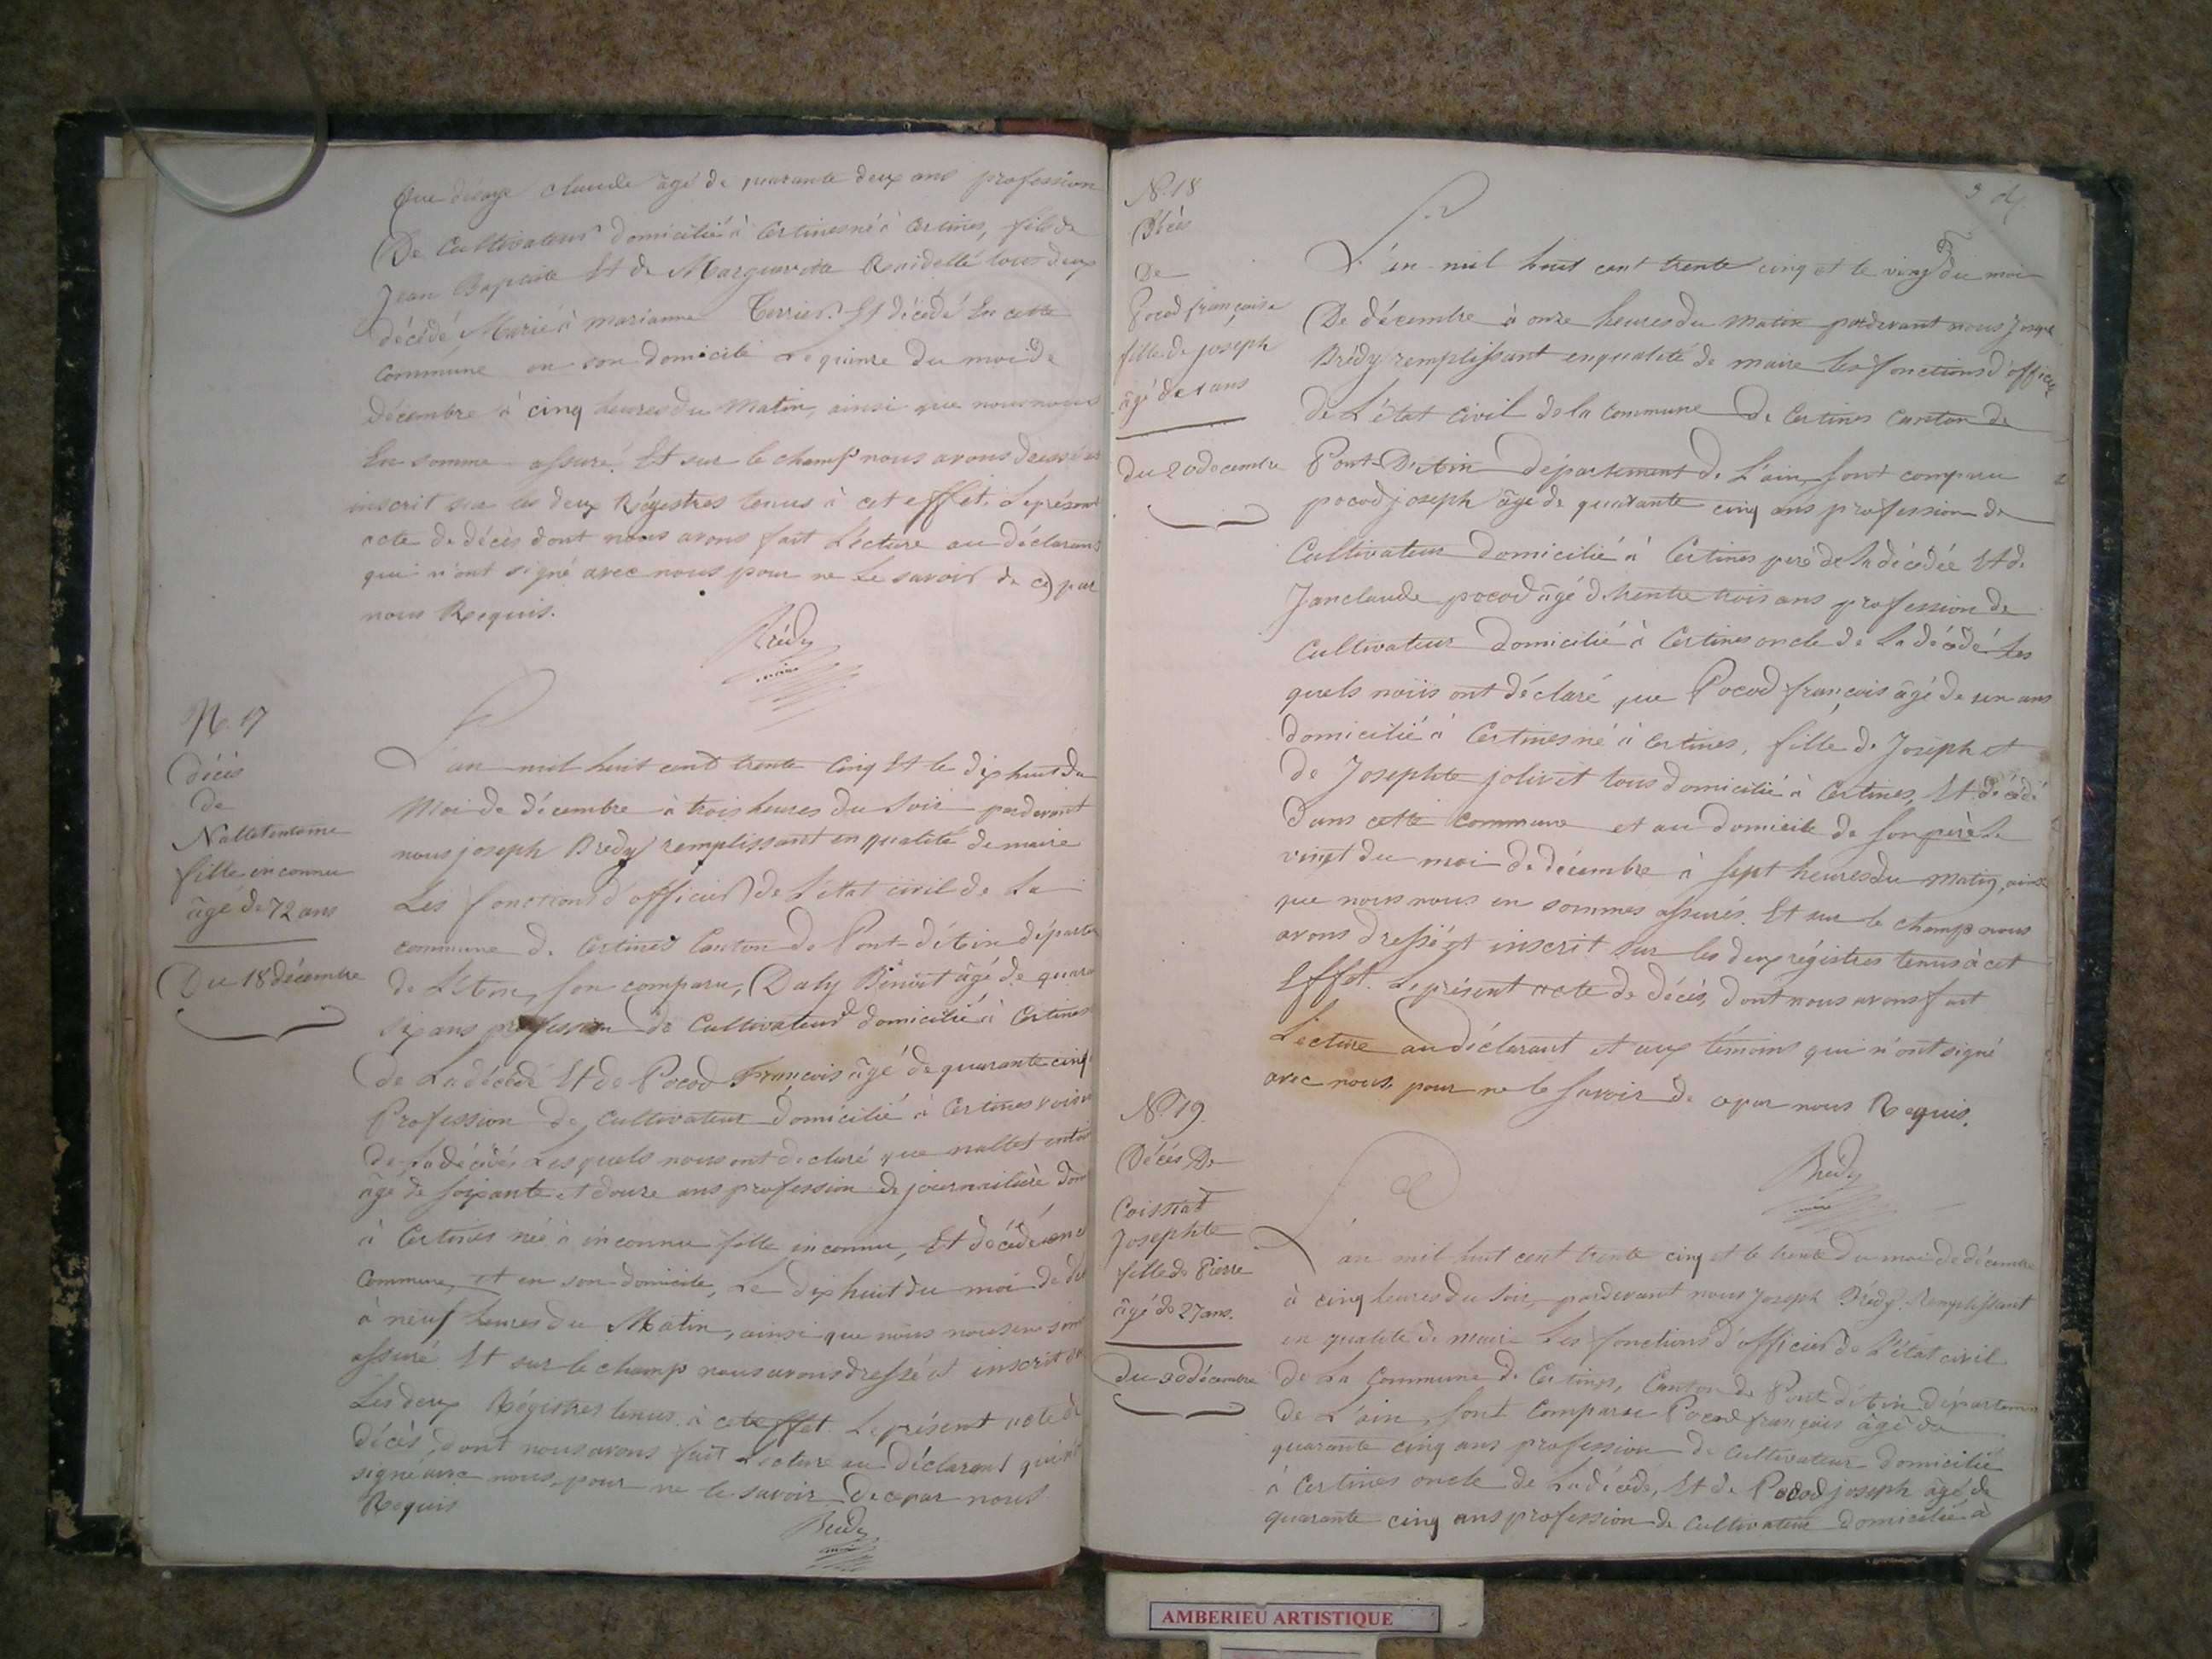 que claude âgé de quarante deux ans profession
De Cultivateur domicilié à Certines né à Certines, fils de
Jean Baptiste Et de Marguerite tous deux
décédé Marié à marianne Et décédé En cette
Commune en son domicile Le quinze Du moi de
décembre à cinq heures du Matin, ainsi que nous nous
En somme assuré. Et sur le champ nous avons
inscrit sur les deux Régistres tenus à cet effet. Le présent
acte de décès dont nous avons fait Lecture au déclarant
qui n'ont signé avec nous pour ne Le savoir de ce par
nous Requis.
Brédy
maire
N. 17
Décès
de
fille inconnu
âgé de 72 ans
Du 18 décembre
L'an mil huit cent trente Cinq Et le dix huit du
Moi de décembre à trois heures du Soir pardevant
nous joseph Brédy remplissant en qualité de maire
Les fonctions d'officier de L'état civil de La
commune de Certines Canton de Pont-d'Ain départe
de L'Ain, son comparu, Daly Benoit âgé de quara
six ans profession de Cultivateur domicilié à Certines
de La décédé Et de Pocod François âgé de quarante cinq
Profession de Cultivateur domicilié à Certines voisin
de La décédé, Lesquels nous ont declaré que nallet
âgé de soixante et douze ans profession de journalière dom
à Certines né à inconnu fille inconnu, Et décédé en c
Commune, et en son domicile, Le dix huit du moi de dé
à neuf heures du Matin, ainsi que nous nous en som
assuré. Et sur le champ nous avons dressé et inscrit sur
Les deux Régistres tenus à cet effet. Le présent acte de
décès, dont nous avons fait Lecture au déclarant qui n'
signé avec nous, pour ne le savoir De ce par nous
Requis
Brédy
maire
N. 18
Décès
De
Pocod françoise
fille de joseph
âgé de 1 ans
du 20 decembre
L'an mil huit cent trente cinq et le vingt du moi
De décembre à onze heures du matin pardevant nous Joseph
Brédy remplissant en qualité de maire les fonctions d'officier
de L'état civil de la commune de Certines canton de
Pont-D'Ain département de L'ain, sont comparu
pocod joseph âgé de quarante cinq ans profession de
Cultivateur domicilié à Certines père de la décédée Et de
Janclaude pocod âgé de trente trois ans profession de
Cultivateur domicilié à Certines oncle de La décédé Les
quels nous ont déclaré que Pocod françois âgé de un ans
domicilié à Certines né à certines, fille de Joseph et
de Josephte jolivet tous domicilié à Certines, Et décédé
Dans cette commune et au domicile de son père Le
vingt du moi de décembre à sept heures du matin, ainsi
que nous nous en sommes assurés. Et sur le champ nous
avons dressé et inscrit sur les deux régistres tenus à cet
Effet. Le présent acte de décès, dont nous avons fait
Lecture au déclarant et aux témoins qui n'ont signé
avec nous, pour ne le savoir de ce par nous Requis.
Brédy
maire
N. 19.
Décès De
Coissiat
Josephte
fille de Pierre
âgé de 27 ans.
du 30 décembre
L'an mil huit cent trente cinq et le trente du moi de décembre
à cinq heures du soir, pardevant nous Joseph Brédy Remplissant
en qualité de maire Les fonctions d'officier de L'état civil
de La Commune de Certines, Canton de Pont d'Ain département
de L'ain, sont Comparu Pocod françois âgé de
quarante cinq ans profession de Cultivateur domicilié
à Certines oncle de La décédé, Et de Pocod joseph âgé de
quarante cinq ans profession de Cultivateur domicilié à
AMBERIEU ARTISTIQUE